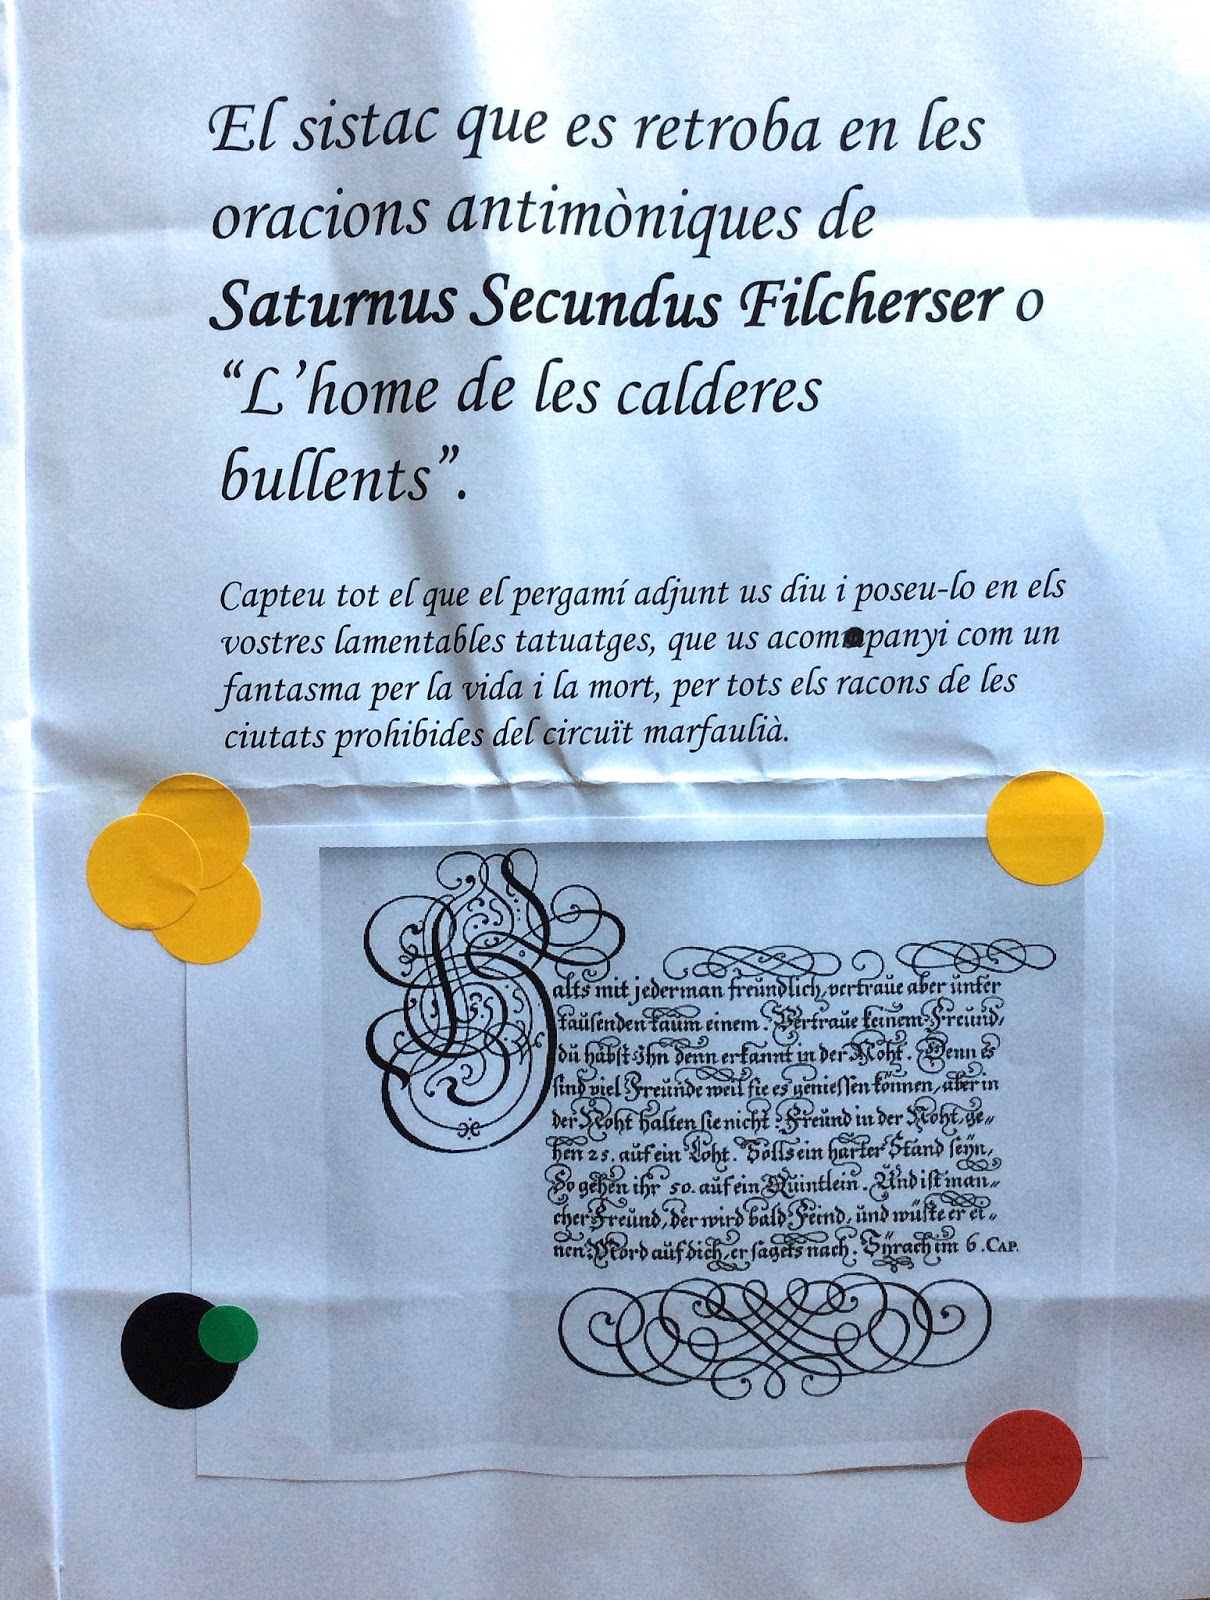 El sistac que es retroba en les
oracions antimòniques de
Saturnus Secundus Filcherser o
“L’home de les calderes
bullents”.
Capteu tot el que el pergamí adjunt us diu i poseu-lo en els
vostres lamentables tatuatges, que us acompanyi com un
fantasma per la vida i la mort, per tots els racons de les
ciutats prohibides del circuït marfaulià.
Halts mit jederman freundlich, vertraue aber unter
tausenden kaum einem. Vertraue keinem Freund,
du habst Ihn denn erkannt in der Noht. Denn es
sind viel Freunde weil sie es geniessen können, aber in
der Noht halten sie nicht. Freund in der Noht, ge-
hen 25. auf ein Loht. Solls ein harter Stand seÿn,
So gehen ihr 50. auf ein Quintlein. Und ist man-
cher Freund, der wird bald Feind, und wüste er ei-
nen Mord auf dich, er sagets nach. Sÿrach im 6. CAP.